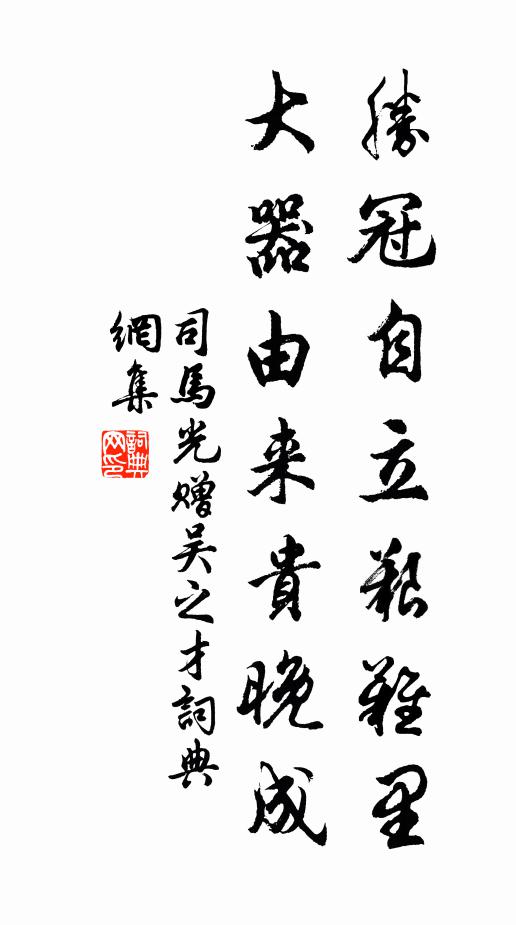 勝冠自立艱難里
大器由来貴晚成
司馬光贈吴之才詞典
網集
詞典
网印